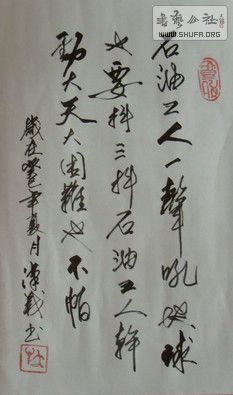 书艺公社
WWW.SHUFA.ORG
石油工人一聲吼地球
也要抖三抖石油工人幹
勁大天大困難也不怕
歲在年夏月漢书